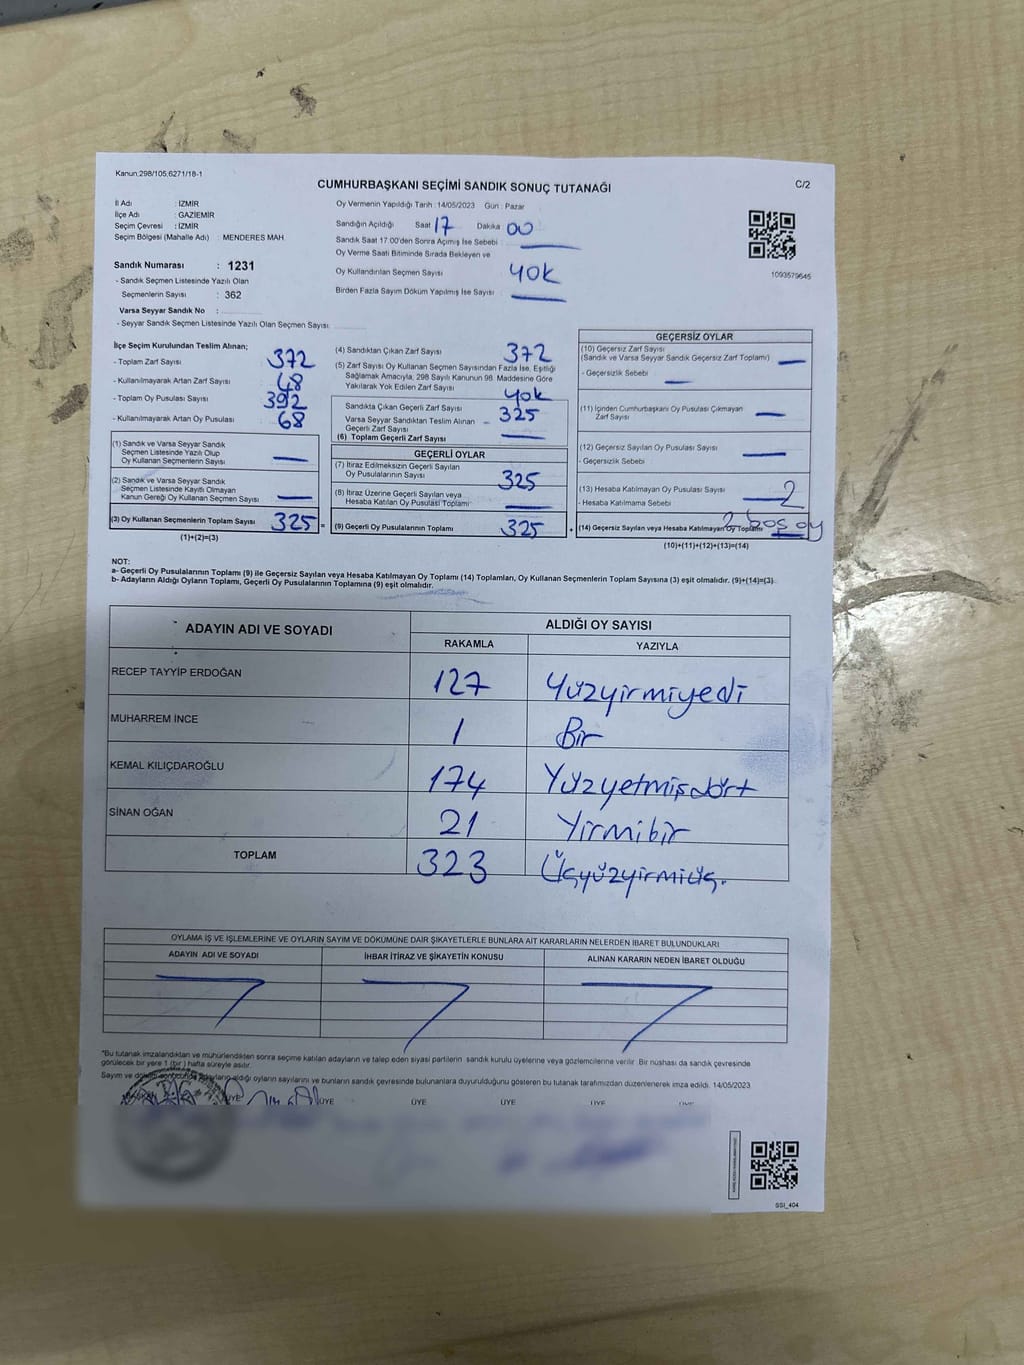 Kanun:298/105;6271/18-1
CUMHURBAŞKANI SEÇİMİ SANDIK SONUÇ TUTANAĞI
C/2
İl Adı : İZMİR
İlçe Adı : GAZİEMİR
Seçim Çevresi : İZMİR
Seçim Bölgesi (Mahalle Adı) : MENDERES MAH
Sandık Numarası : 1231
- Sandık Seçmen Listesinde Yazılı Olan
Seçmenlerin Sayısı : 362
Varsa Seyyar Sandık No :
- Seyyar Sandık Seçmen Listesinde Yazılı Olan Seçmen Sayısı:
Oy Vermenin Yapıldığı Tarih : 14/05/2023 Gün : Pazar
Sandığın Açıldığı Saat 17 Dakika 00
Sandık Saat 17.00'den Sonra Açımış İse Sebebi
Oy Verme Saati Bitiminde Sırada Bekleyen ve
Oy Kullandırılan Seçmen Sayısı yok
Birden Fazla Sayım Döküm Yapılmış İse Sayısı
1093579645
İlçe Seçim Kurulundan Teslim Alınan;
- Toplam Zarf Sayısı 372
- Kullanılmayarak Artan Zarf Sayısı 48
- Toplam Oy Pusulası Sayısı 392
- Kullanılmayarak Artan Oy Pusulası 68
(1) Sandık ve Varsa Seyyar Sandık
Seçmen Listesinde Yazılı Olup
Oy Kullanan Seçmenlerin Sayısı
(2) Sandık ve Varsa Seyyar Sandık
Seçmen Listesinde Kayıtlı Olmayan
Kanun Gereği Oy Kullanan Seçmen Sayısı
(3) Oy Kullanan Seçmenlerin Toplam Sayısı 325 =
(1)+(2)=(3)
(4) Sandıktan Çıkan Zarf Sayısı 372
(5) Zarf Sayısı Oy Kullanan Seçmen Sayısından Fazla İse, Eşitliği
Sağlamak Amacıyla, 298 Sayılı Kanunun 98. Maddesine Göre
Yakılarak Yok Edilen Zarf Sayısı yok
Sandıkta Çıkan Geçerli Zarf Sayısı 325
Varsa Seyyar Sandıktan Teslim Alınan
Geçerli Zarf Sayısı
(6) Toplam Geçerli Zarf Sayısı
GEÇERLİ OYLAR
(7) İtiraz Edilmeksizin Geçerli Sayılan
Oy Pusulalarının Sayısı 325
(8) İtiraz Üzerine Geçerli Sayılan veya
Hesaba Katılan Oy Pusulası Toplamı
(9) Geçerli Oy Pusulalarının Toplamı 325 +
GEÇERSİZ OYLAR
(10) Geçersiz Zarf Sayısı
(Sandık ve Varsa Seyyar Sandık Geçersiz Zarf Toplamı)
- Geçersizlik Sebebi
(11) İçinden Cumhurbaşkanı Oy Pusulası Çıkmayan
Zarf Sayısı
(12) Geçersiz Sayılan Oy Pusulası Sayısı
- Geçersizlik Sebebi
(13) Hesaba Katılmayan Oy Pusulası Sayısı 2
- Hesaba Katılmama Sebebi
(14) Geçersiz Sayılan veya Hesaba Katılmayan Oy Toplamı 2 boş oy
(10)+(11)+(12)+(13)=(14)
NOT:
a- Geçerli Oy Pusulalarının Toplamı (9) ile Geçersiz Sayılan veya Hesaba Katılmayan Oy Toplamı (14) Toplamları, Oy Kullanan Seçmenlerin Toplam Sayısına (3) eşit olmalıdır. (9)+(14)=(3)
b- Adayların Aldığı Oyların Toplamı, Geçerli Oy Pusulalarının Toplamına (9) eşit olmalıdır.
ADAYIN ADI VE SOYADI ALDIĞI OY SAYISI
RAKAMLA YAZIYLA
RECEP TAYYİP ERDOĞAN 127 Yüzyirmiyedi
MUHARREM İNCE 1 Bir
KEMAL KILIÇDAROĞLU 174 Yüzyetmişdört
SİNAN OĞAN 21 Yirmibir
TOPLAM 323 Üçyüzyirmiüç.
OYLAMA İŞ VE İŞLEMLERİNE VE OYLARIN SAYIM VE DÖKÜMÜNE DAİR ŞİKAYETLERLE BUNLARA AİT KARARLARIN NELERDEN İBARET BULUNDUKLARI
ADAYIN ADI VE SOYADI İHBAR İTİRAZ VE ŞİKAYETİN KONUSU ALINAN KARARIN NEDEN İBARET OLDUĞU
*Bu tutanak imzalandıktan ve mühürlendikten sonra seçime katılan adayların ve talep eden siyasi partilerin sandık kurulu üyelerine veya gözlemcilerine verilir. Bir nüshası da sandık çevresinde
görülecek bir yere 1 (bir) hafta süreyle asılır.
Sayım ve döküm sonucunda adayların aldığı oyların sayılarını ve bunların sandık çevresinde bulunanlara duyurulduğunu gösteren bu tutanak tarafımızdan düzenlenerek imza edildi. 14/05/2023
ÜYE ÜYE ÜYE ÜYE ÜYE
SSI_404